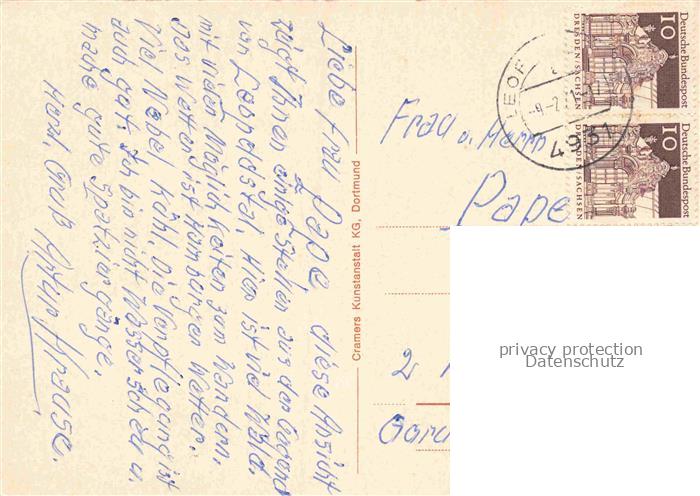 Liebe Frau Pape diese Ansicht
zeigt Ihnen einige Stellen aus der Gegend
von Leopoldstal. Hier ist viel Wald.
mit vielen Möglichkeiten zum Wandern,
das Wetter ist Hamburger Wetter.
Viel Nebel kühl, die Verpflegung ist
auch gut. Ich bin nicht Wasserscheu u.
mache gute Spatziergänge.
Herzl. Gruß Arthur Krause.
Cramers Kunstanstalt KG, Dortmund
Frau u. Herrn
Pape
2
Deutsche Bundespost
10
DRESDEN/SACHSEN
Deutsche Bundespost
10
DRESDEN/SACHSEN
4931
privacy protection
Datenschutz